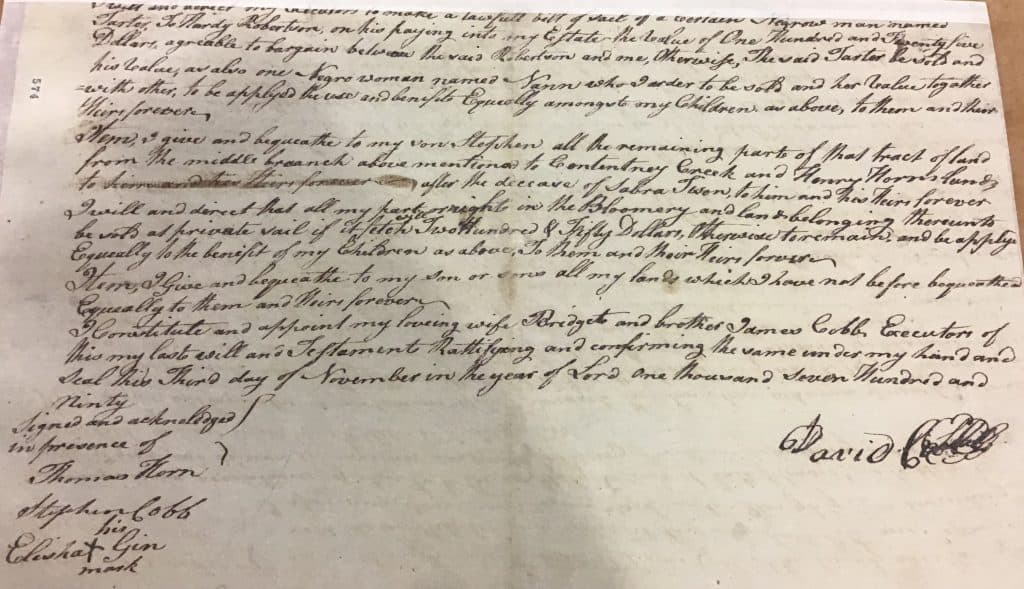 I will and direct my Executors to make a lawfull bill of sail of a certain Negrow man named
Tarter, To Hardy Robertson, on his paying into my Estate the Value of One Hundred and Twenty five
Dollars, agreable to bargain between the said Robertson and me, Otherwise, The said Tarter be sold and
his Value, as also one Negro woman named Nann who I arder to be sold and her Value together
=with other, to be applyed the use and benefits Equeally amongst my Children as above, to them and their
Heirs forever
Item, I give and bequeathe to my son Stephen all the remaining parte of that tract of land
from the middle braanch above mentioned to Contentney Creek and Henry Horns lands
to him and his Heirs forever after the decease of Sabra Twon, to him and his Heirs forever
I will and direct that all my part or right in the Bloomery and land belonging thereunto
be sold as private sail if it fetch Two Hundred & Fifty Dollars, Otherwise to remain, and be applyd
Equeally to the benefit of my Children as above, To them and their Heirs forever
Item, I Give and bequeathe to my son or sons all my lands which I have not before bequeathed
Equeally to them and Heirs forever
I Constitute and appoint my loveing wife Bridget and brother James Cobb Executors of
this my last will and Testament Rattifying and confirming the same under my hand and
Seal this Third day of November in the year of Lord one thousand seven Hundred and
Ninty
Signed and acknoledged
in presence of
Thomas Horn
David Cobb
Stephen Cobb
his
Elisha X Gin
mark
574